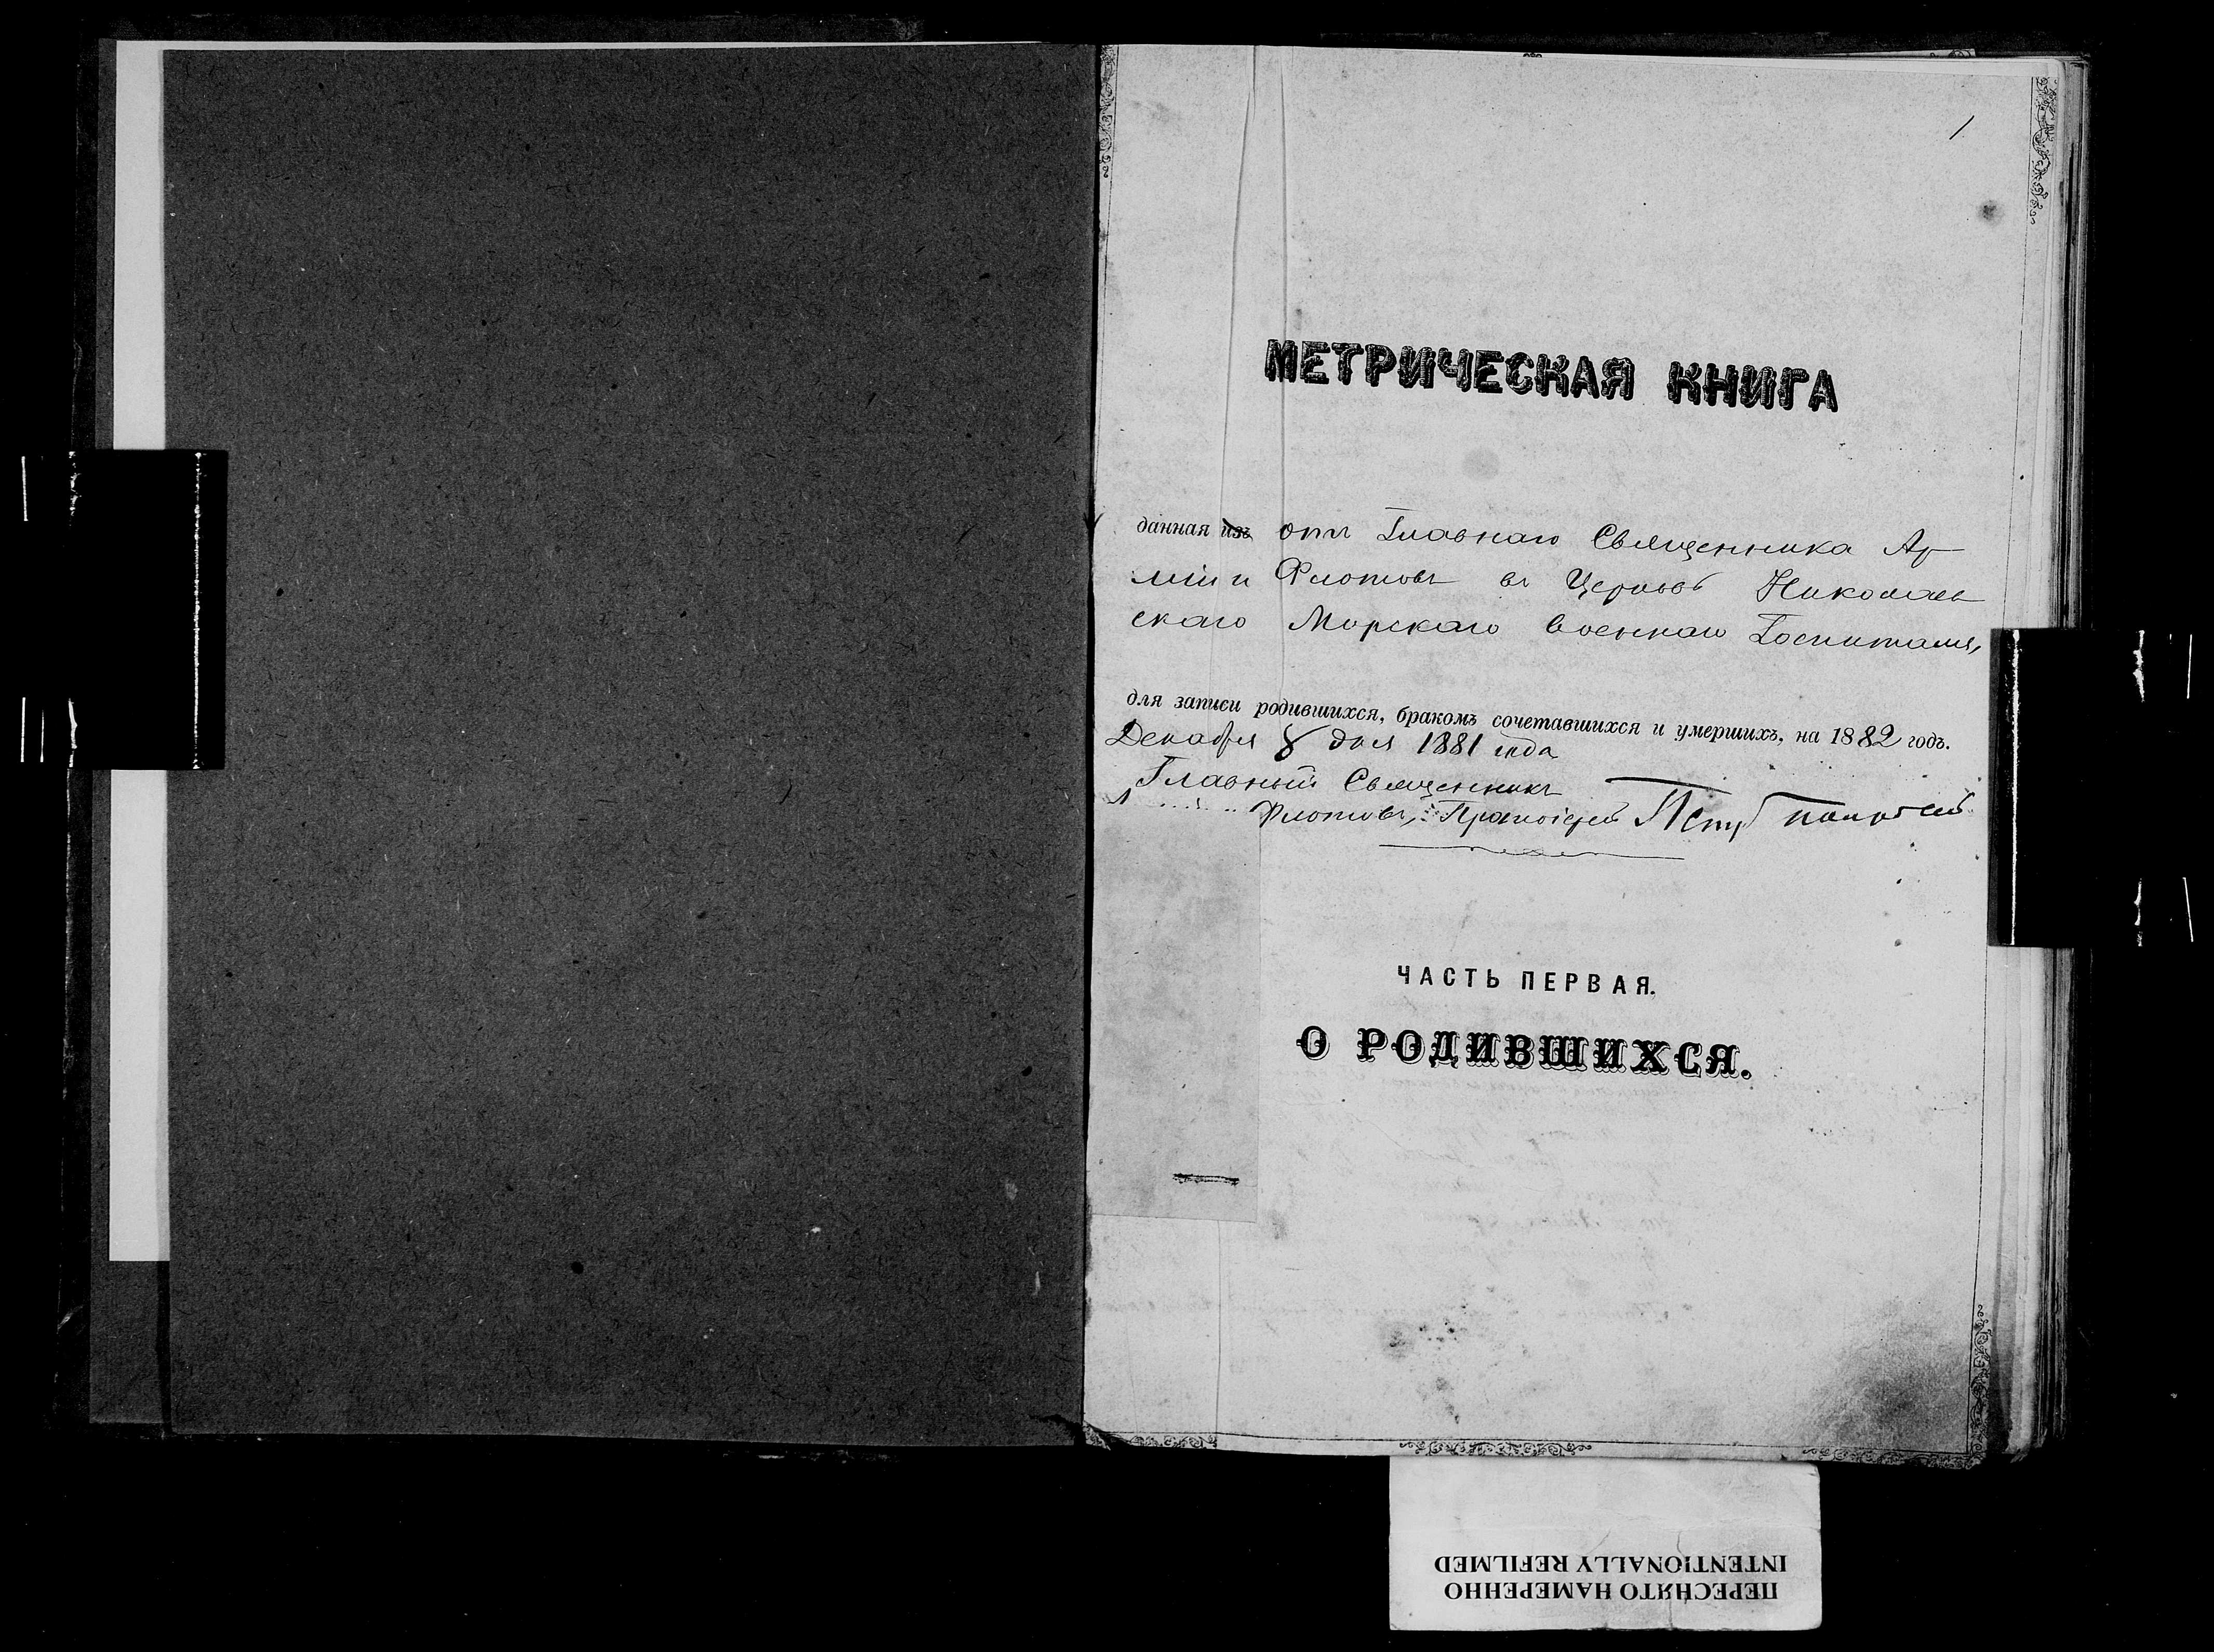 1
МЕТРИЧЕСКАЯ КНИГА
данная изъ отъ Главнаго Священника Ар-
міи и Флотовъ въ Церковь Николаев
скаго Морскаго военнаго Госпиталя,
для записи родившихся, бракомъ сочетавшихся и умершихъ, на 1882 годъ.
Декабря 8 дня 1881 года
Главный Священникъ
Флотовъ, Протоіерей Петръ Покровскій
ЧАСТЬ ПЕРВАЯ.
О РОДИВШИХСЯ.
ПЕРЕСНЯТО НАМЕРЕННО
INTENTIONALLY REFILMED